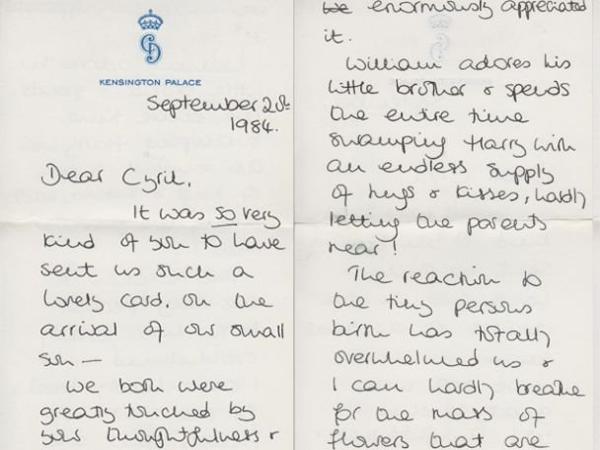 KENSINGTON PALACE
September 20th
1984.
Dear Cyril,
It was so very
kind of you to have
sent us such a
lovely card, on the
arrival of our small
son —
We both were
greatly touched by
your thoughtfulness &
we enormously appreciated
it.
William adores his
little brother & spends
the entire time
swamping Harry with
an endless supply
of hugs & kisses, hardly
letting the parents
near!
The reaction to
one tiny persons
birth has totally
overwhelmed us &
I can hardly breathe
for the mass of
flowers that are